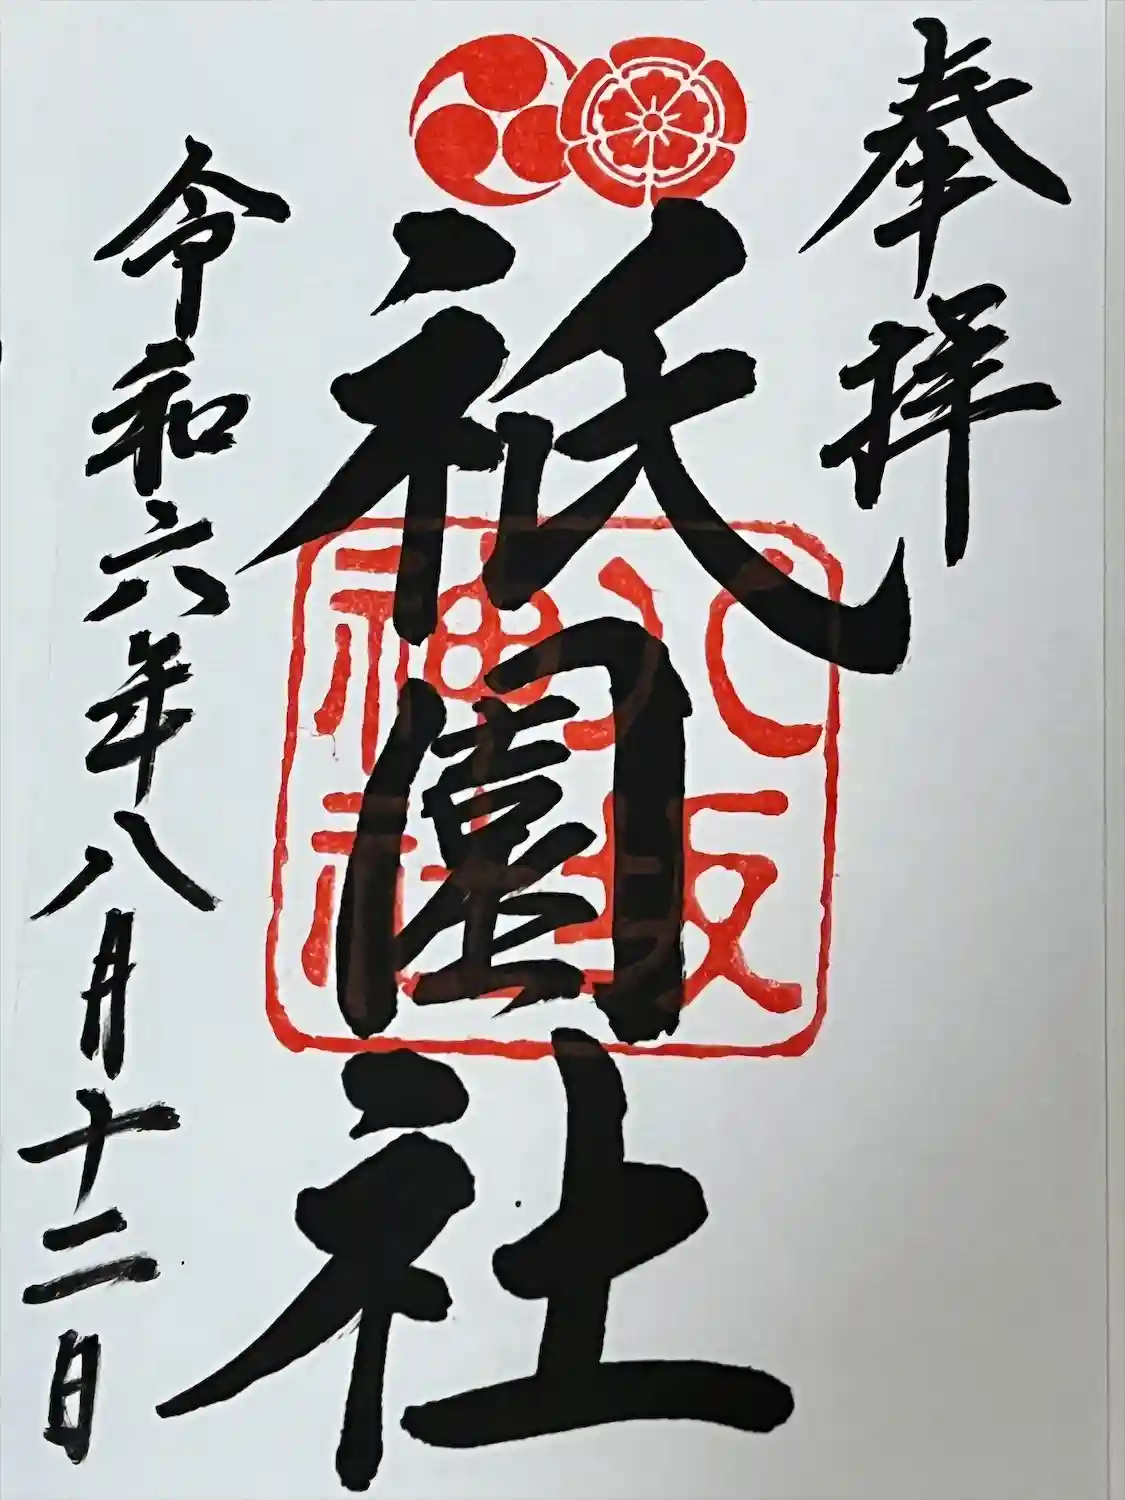 奉拝
祇園社
八坂
神社
令和六年八月十二日